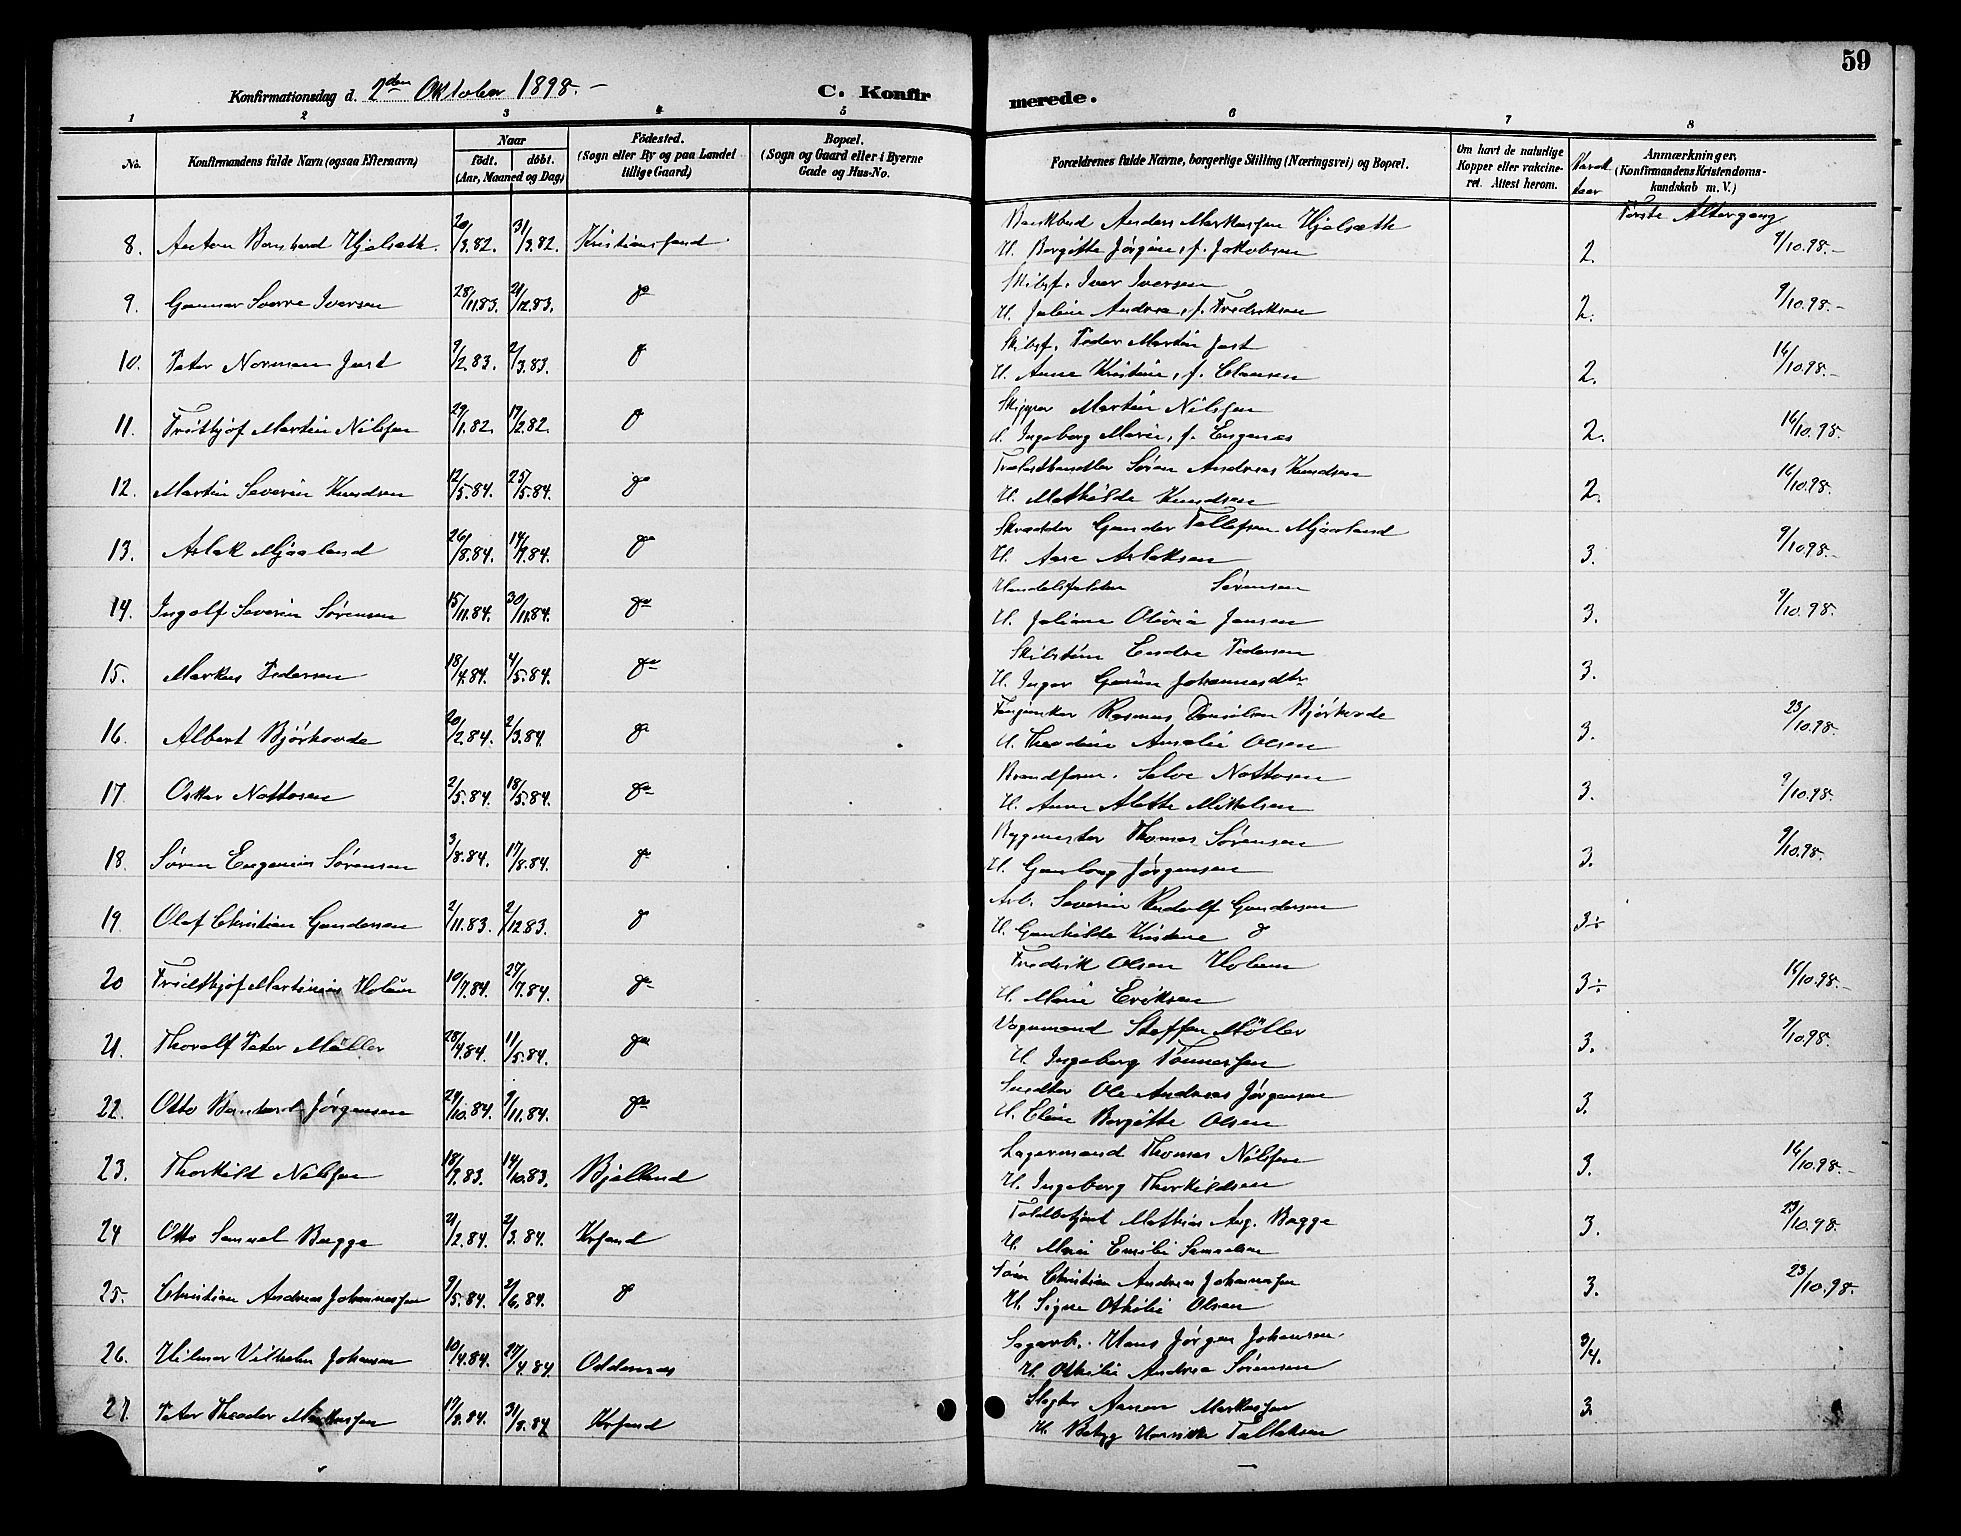 59
Konfirmationsdag d. 2den Oktober 1898.-
C. Konfirmerede.
1 2 3 4 5 6 7 8
No.
Konfirmandens fulde Navn (ogsaa Efternavn)
Naar
födt. döbt.
(Aar, Maaned og Dag)
Födested.
(Sogn eller By og paa Landet tillige Gaard)
Bopæl.
(Sogn og Gaard eller i Byerne Gade og Hus-No.
Forældrenes fulde Navne, borgerlige Stilling (Næringsvei) og Bopæl.
Om havt de naturlige Kopper eller vakcineret. Attest herom.
Karakter
Anmærkninger.
(Konfirmandens Kristendomskundskab m. V.)
Første Altergang
8. Anton Bernhard Hjelsæth. 20/3.82. 31/3.82. Kristianssand. Bankbud Anders Markussen Hjelsæth
H. Borgitte Jørgine, f. Jakobsen 2. 9/10.98.-
9. Gunnar Sverre Iversen 28/11.83. 21/12.83. do Skibsf. Iver Iversen
H. Juline Andrea, f. Fredriksen 2. 9/10.98.-
10. Peter Norman Just 9/2.83. 2/3.83. do Skibsf. Peder Martin Just
H. Anne Kristine, f. Clausen 2. 16/10.98.-
11. Frithjof Martin Nilsen 29/1.82. 17/2.82. do Skipper Martin Nilsen
H. Ingeborg Marie, f. Eugenæs 2. 16/10.98.
12. Martin Severin Knudsen 12/5.84. 25/5.84. do Trælasthandler Søren Andreas Knudsen
H. Mathilde Knudsen 2. 16/10.98.
13. Aslak Mjaaland 26/8.84. 14/9.84. do Skrædder Gunder Tallefsen Mjaaland
H. Aase Aslaksen 3. 9/10.98.-
14. Ingolf Severin Sørensen 15/11.84. 30/11.84. do Handelsfuldm. Sørensen
H. Juliane Olivia Jansen 3. 9/10.98.
15. Markus Pedersen 18/4.84. 4/5.84. do Skibstøm. Endre Pedersen
H. Inger Gurine Johannesdtr 3.
16. Albert Bjørkovde 20/2.84. 2/3.84. do Rasmus Danielsen Bjørkovde
H. Theodine Amalie Olsen 3. 23/10.98.
17. Oskar Nottosen 2/5.84. 18/5.84. do Brandform. Salve Nottosen
H. Anne Alette Mikkelsen 3. 9/10.98.
18. Søren Eugenius Sørensen 3/8.84. 17/8.84. do Bygmester Thomas Sørensen
H. Gunlaug Jørgensen 3. 9/10.98.
19 Olaf Christian Gundersen 2/11.83. 2/12.83. do Arb. Severin Rudolf Gundersen
H. Gunhilde Kristine do 3÷
20 Fridthjof Martinius Holum 10/7.84. 27/7.84. do Fredrik Olsen Holum
H. Marie Eriksen 3÷. 16/10.98.-
21. Thoralf Peter Møller 28/4.84. 11/5.84. do Vognmand Steffen Møller
H. Ingeborg Tønnessen 3. 9/10.98.
22. Otto Bernhard Jørgensen 24/10.84. 9/11.84. do Snedker Ole Andreas Jørgensen
H. Eline Borgitte Olsen 3.
23. Thorkild Nilsen 18/9.83. 14/10.83. Bjelland Lagermand Thomas Nilsen
H. Ingeborg Thorkildsen 3. 16/10.98.-
24 Otto Samuel Bugge 21/2.84. 2/3.84. Krsand Toldbetjent Mathias Aug. Bugge
H. Marie Emilie Samuelsen 3. 23/10.98.
25. Christian Andreas Johannessen 9/5.84. 2/6.84. do Søm. Christian Andreas Johannessen
H. Signe Othilie Olsen 3. 23/10.98.
26. Hilmar Vilhelm Johansen 10/4.84. 27/4.84. Oddernæs Sagarb. Hans Jørgen Johansen.
H. Othilie Andrea Sørensen 3/4.
27. Peter Theodor Markussen 17/8.84. 31/8.84 Krsand Slagter Aanon Markussen
H. Tallaksen 3.